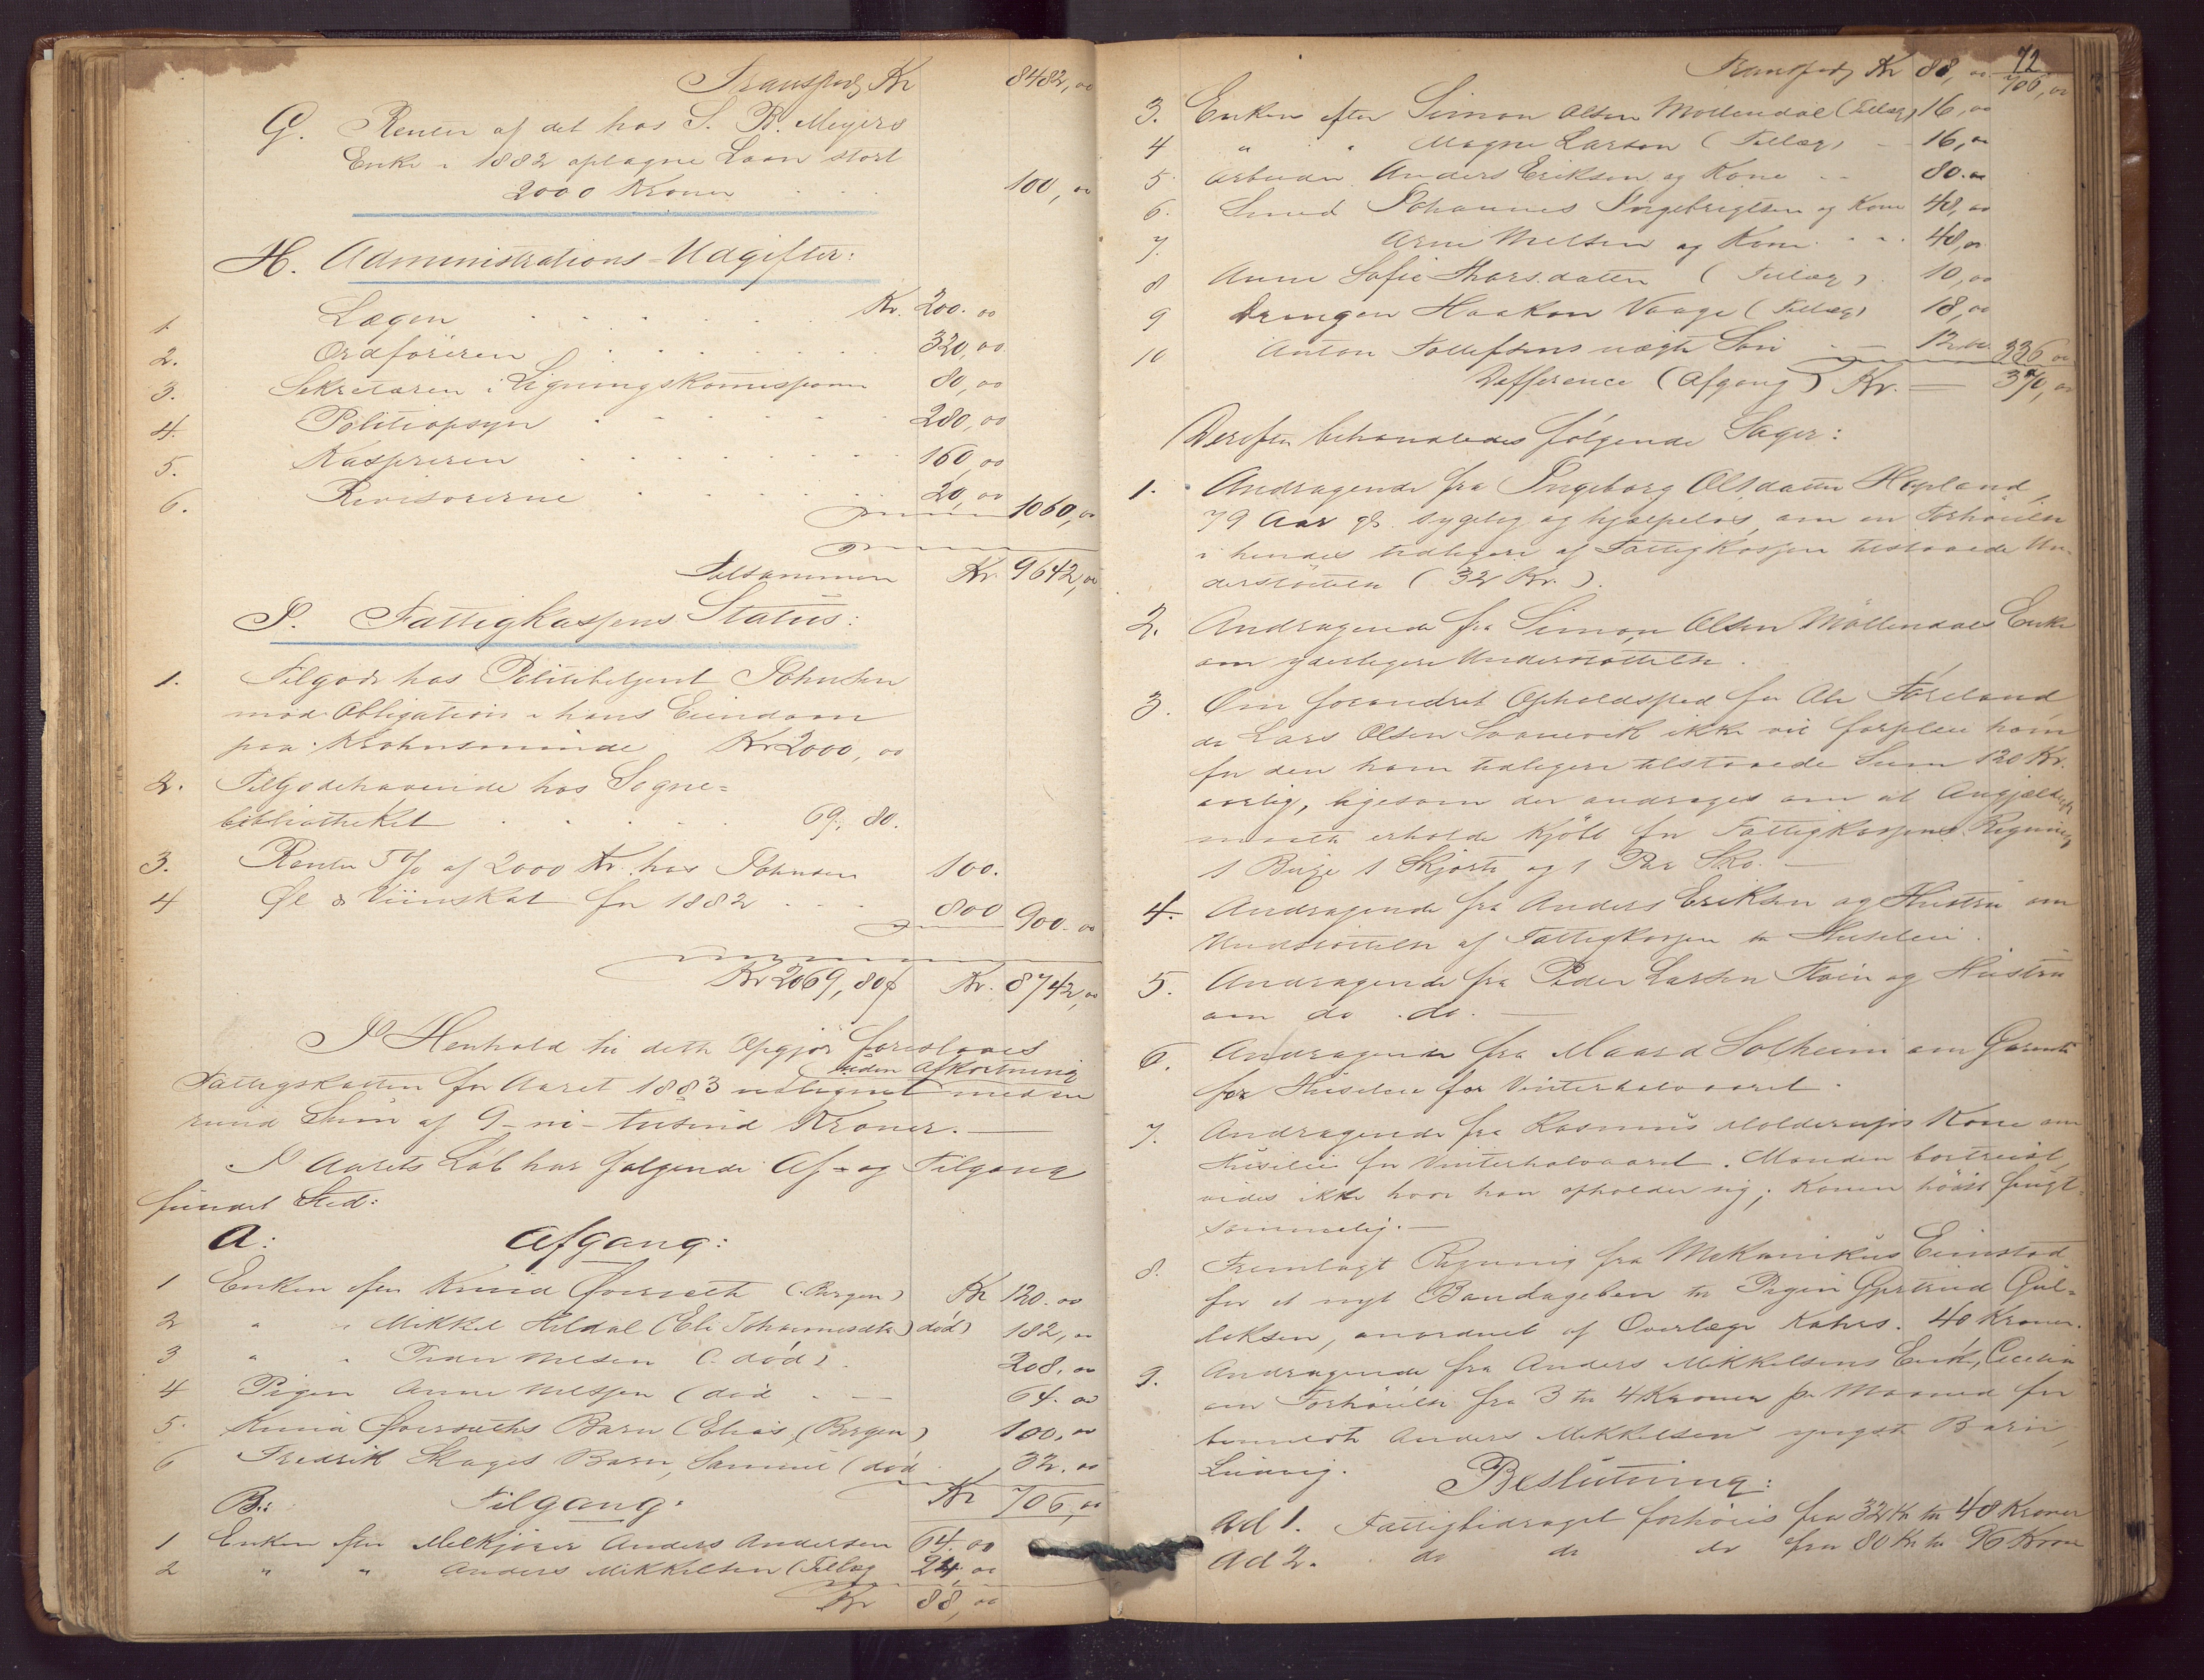 Transport Kr 8482,00
G. Renter af det hos S. R. Meyers
Enke i 1882 optagne Laan stort
2000 Kroner 100,00
H. Administrations-Udgifter:
1. Lægen Kr. 200.00
2. Ordføreren 320,00
3. Sekretæren i Ligningskommissionen 80,00
4. Politiopsyn 280,00
5. Kassereren 160,00
6. Revisorerne 20,00 1060,00
Tilsammen Kr. 9642,00
I. Fattigkassens Status:
1. Tilgode hos Politibetjent Johnsen
mod Obligation i hans Eiendom
paa Krohnsminde Kr 2000,00
2. Tilgodehavende hos Sogne-
bibliotheket 69,80.
3. Renter 5% af 2000 Kr. hos Johnsen 100.
4 Øl & Viinskat for 1882 800 900.00
Kr 2069,80 Kr. 8742,00
I Henhold til dette Opgjør foreslaaes
uden Afkortning
Fattigskatten for Aaret 1883 udlignet med en
rund Sum af 9-ni-tusind Kroner.
I Aarets Løb har følgende Af- og Tilgang
fundet Sted:
A: Afgang:
1 Enken efter Knud Øvrevith (Bergen) Kr 120.00
2 " " Mikkel Hildal (Eli Johannesdtr) død) 182,00
3 " " Peder Nilsen (død) 208,00
4 Pigen Anne Nilssen (død 64.00
5. Knud Øvreviths Barn (Elias, (Bergen) 100,00
6 Fredrik Skages Barn, Samuel (død 32.00
B: Tilgang: Kr 706,00
1 Enken efter Melkjører Anders Andersen 64.00
2 " " Anders Mikkelsen (Tillæg 24,00
Kr 88,00
72
Transport Kr 88,00 706,00
3. Enken efter Simon Olsen Møllendal (Tillæg) 16,00
4 " " Magne Larsen (Tillæg) 16,00
5. Arbeider Anders Eriksen og Kone 80.00
6. Smed Johannes Ingebrigtsen og Kone 48,00
7. Arne Nielsen og Kone 48,00
8 Anne Sofie Tharsdatter (Tillæg) 10,00
9 Drengen Haakon Vaage (Tillæg) 18,00
10 Anton Tollefsens uægte Søn 12.00 336,00
Defference (Afgang) Kr. 370,00
Derefter behandledes følgende Sager:
1. Andragende fra Ingeborg Olsdatter Hopland,
79 Aar gl. sygelig og hjælpeløs, om en Forhøielse
i hendes tidligere af Fattigkassen tilstaaede Un-
derstøttelse (32 Kr.).
2. Andragende fra Simon Olsen Møllendals Enke
om yderligere Understøttelse.
3. Om forandret Opholdssted for Ole Føreland
da Lars Olsen Svanevik ikke vil forpleie ham
for den ham tidligere tilstaaede Sum 120 Kr.
aarlig, ligesom der andrages om at Angjældende
maatte erholde kjøbt for Fattigkassens Regning
1 Buxe 1 Skjorte og 1 Par Sko.
4. Andragende fra Anders Eriksen og Hustru om
Understøttelse af Fattigkassen til Husleie.
5. Andragende fra Peder Larsen Fløen og Hustru
om do. do.
6. Andragende fra Maard Solheim om Garanti
for Husleie for Vinterhalvaaret.
7. Andragende fra Rasmus Kone om
Husleie for Vinterhalvaaret. Manden bortreist,
vides ikke hvor han opholder sig; Konen høist frugt-
sommelig.
8. Fremlagt Regning fra Mekanikus Eimstad
for et nyt Bandageben til Pigen Gjertrud Gul-
leksen, anordnet af Overlæge Kahrs. 40 Kroner.
9. Andragende fra Anders Mikkelsens Enke, Cecilia
om Forhøielse fra 3 til 4 Kroner pr Maaned for
bemeldte Anders Mikkelsens yngste Barn,
Ludvig.
Beslutning:
Ad 1. Fattigbidraget forhøies fra 32 Kr til 48 Kroner
Ad 2. do do do fra 80 Kr til 96 Kroner